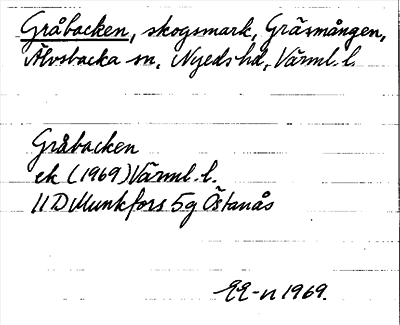 Gråbacken, skogsmark, Gräsmången,
Älvsbacka sn, Nyeds hd, Värml. l.
Gråbacken
ek (1969) Värml. l.
11D Munkfors 5g Östanås
1969.